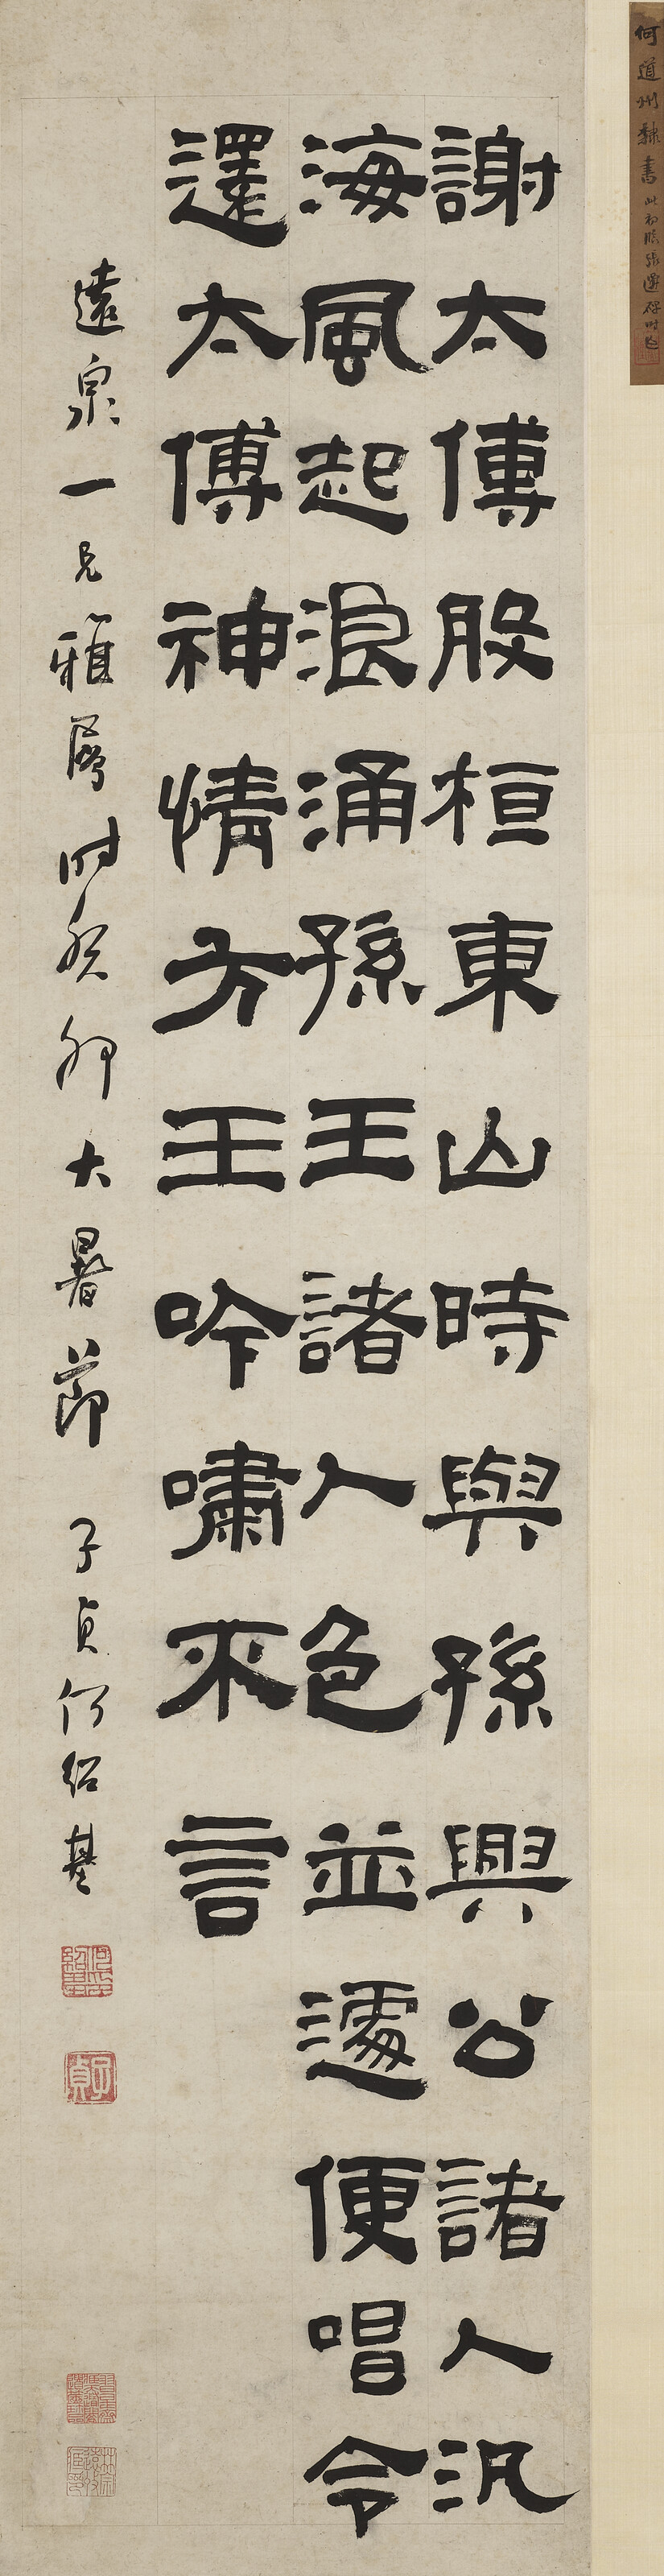 何道州隸書 此初臨張遷碑時也
謝太傅般桓東山時與孫興公諸人汎
海風起浪涌孫王諸人色並遽便唱令
還太傅神情方王吟嘯不言
遠泉一兄雅屬時癸卯大暑節 子貞何紹基
子貞